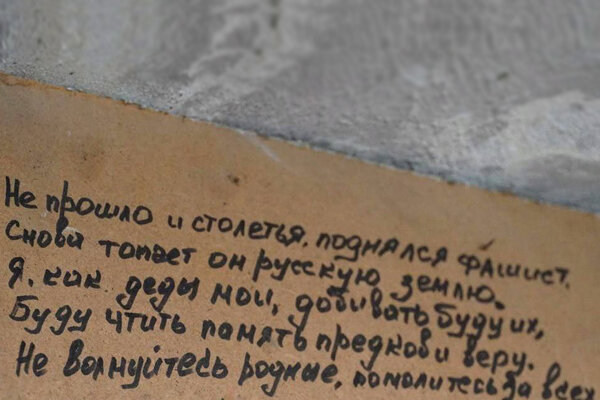 Не прошло и столетья, поднялся фашист.
Снова топает он русскую землю.
Я, как деды мои, добивать буду их,
Буду чтить память предков и веру.
Не волнуйтесь родные, помолитесь за всех